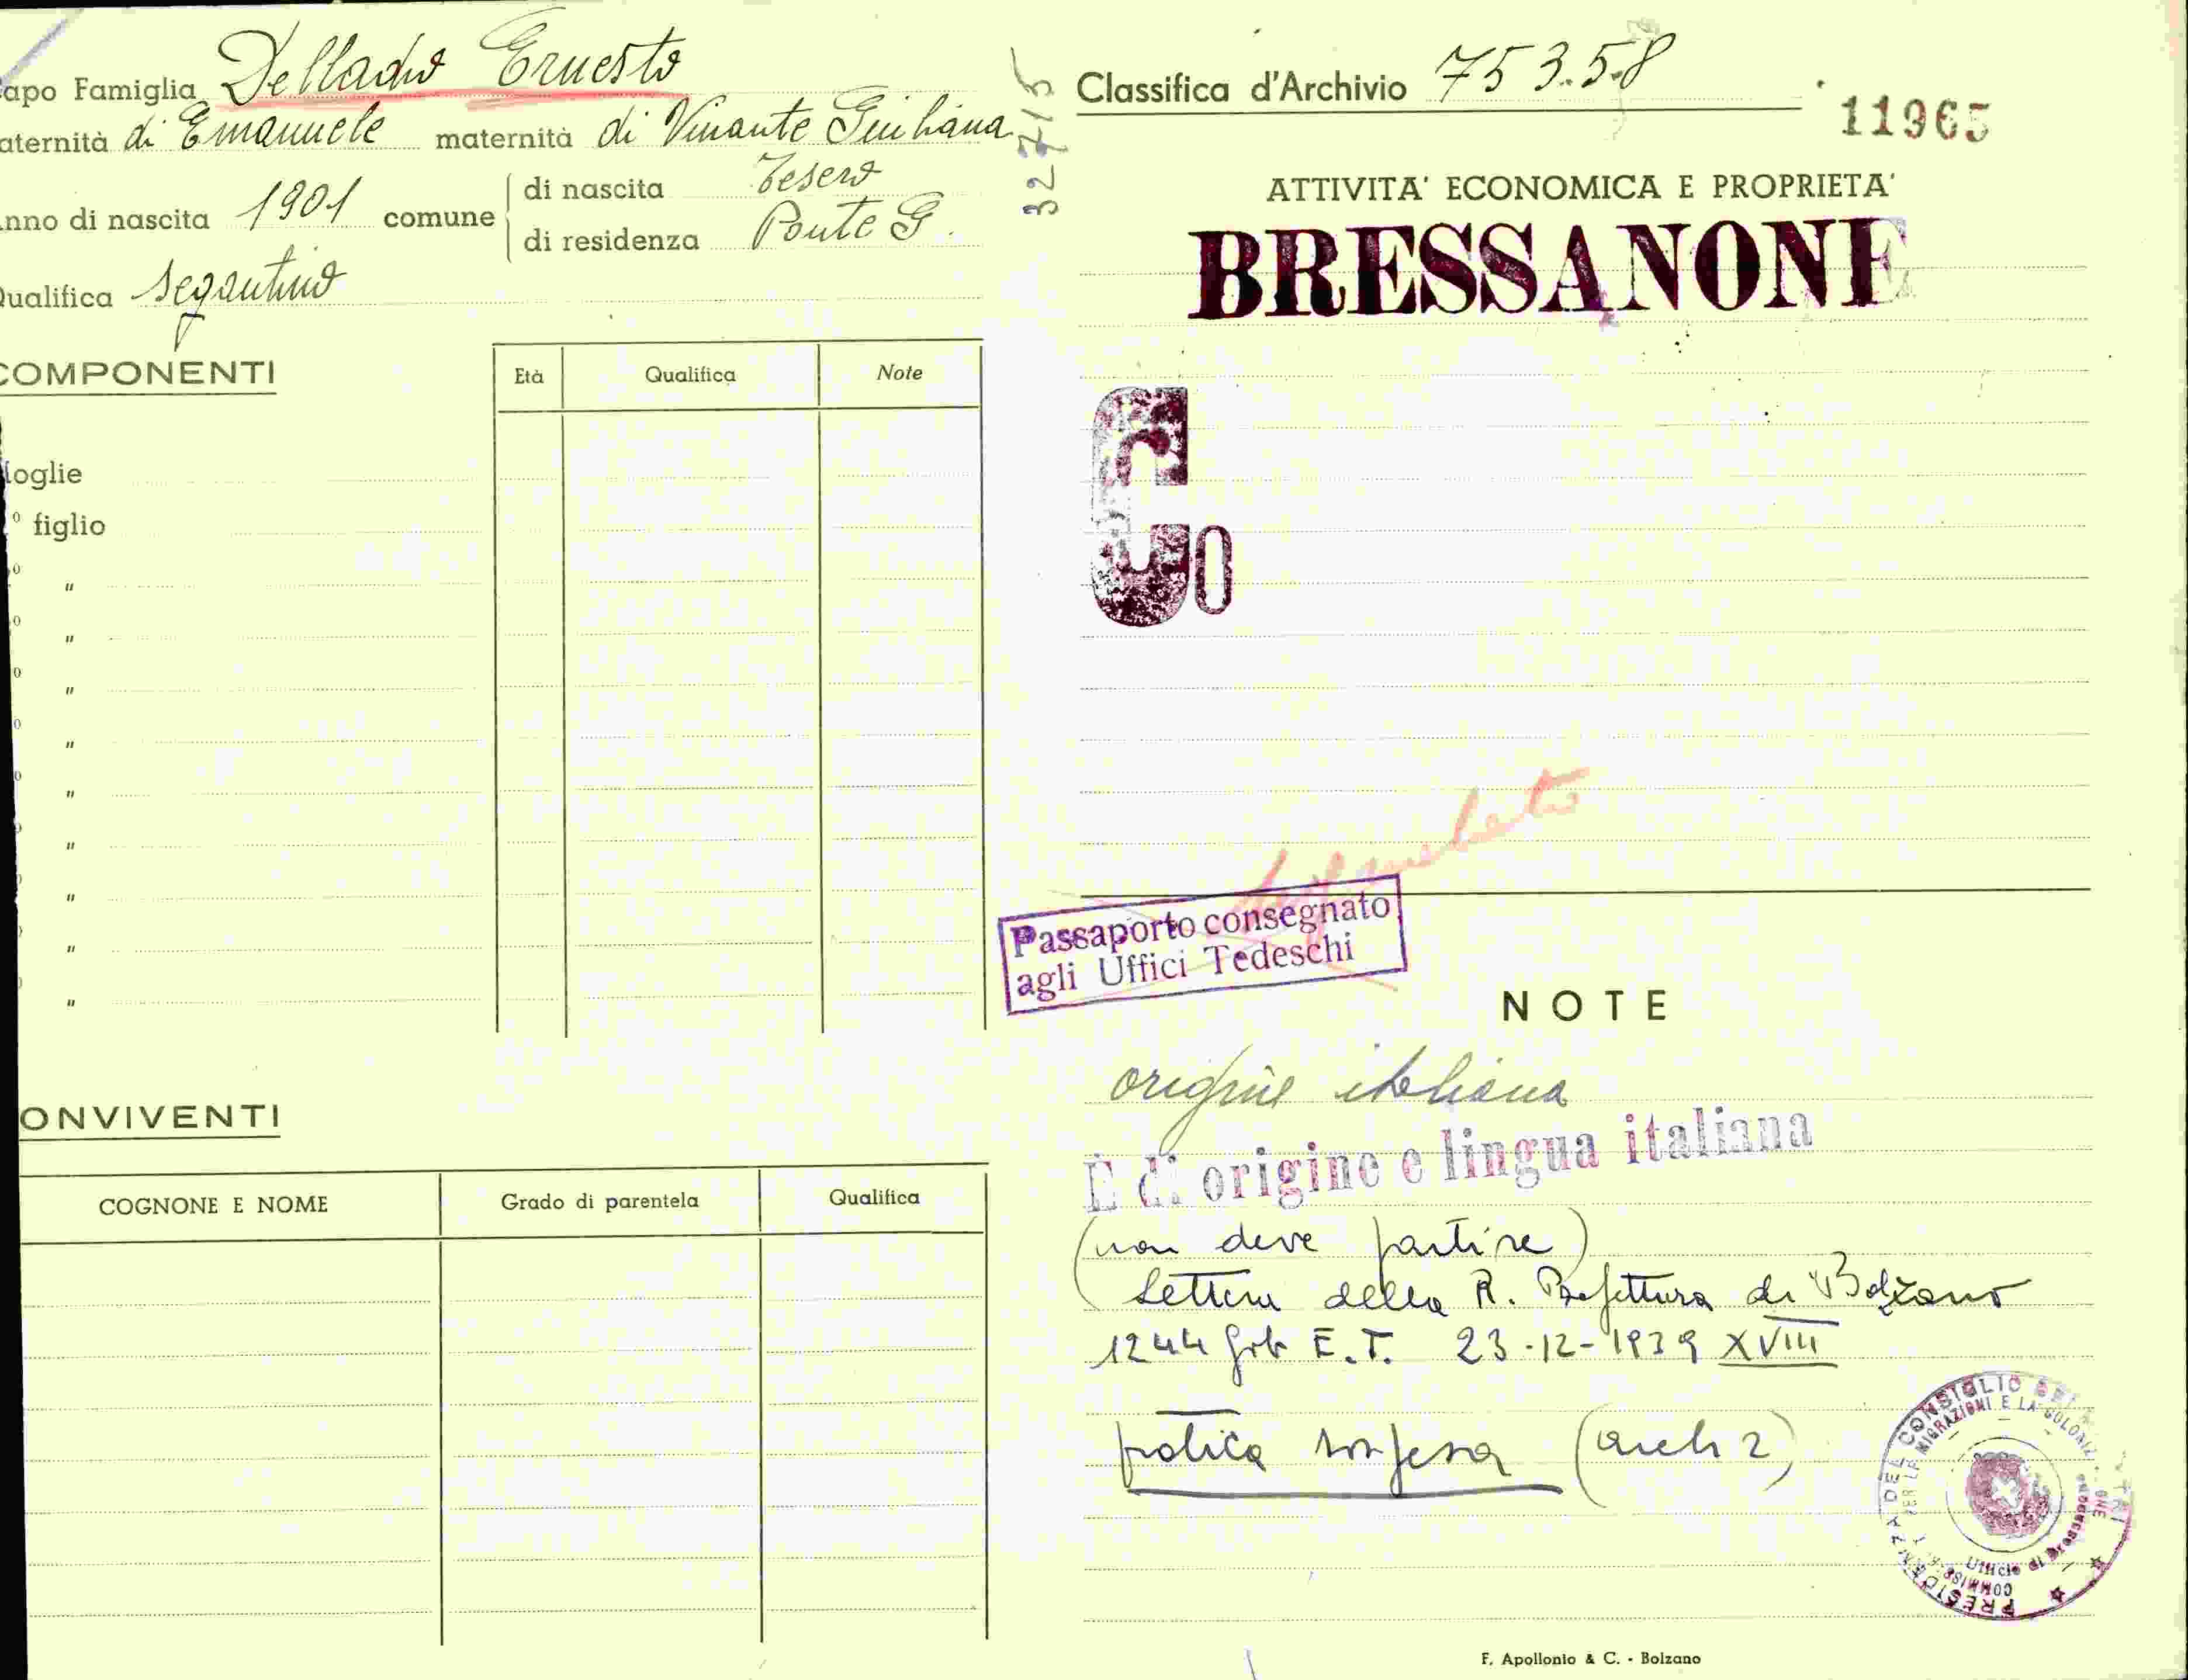 apo Famiglia Delladio Ernesto
aternità di Emanuele maternità di Vinante Giuliana
nno di nascita 1901 comune
di nascita Tesero
di residenza Ponte G.
ualifica segantino
COMPONENTI
Età Qualifica Note
oglie
° figlio
"
"
"
"
"
"
"
"
"
ONVIVENTI
COGNONE E NOME Grado di parentela Qualifica
32715
Classifica d'Archivio 753.58
11965
ATTIVITA' ECONOMICA E PROPRIETA'
BRESSANONE
C0
Passaporto consegnato
agli Uffici Tedeschi
NOTE
origine italiana
È di origine e lingua italiana
(non deve partire)
Lettera della R. Prefettura di Bolzano
1244 Gab E.T. 23-12-1939 XVIII
pratica sospesa (arch 2)
PRESIDENZA DEL CONSIGLIO DEI
COMMISS. PER LE MIGRAZIONI E LA COLONIZ
Ufficio di Bressanone
F. Apollonio & C. - Bolzano